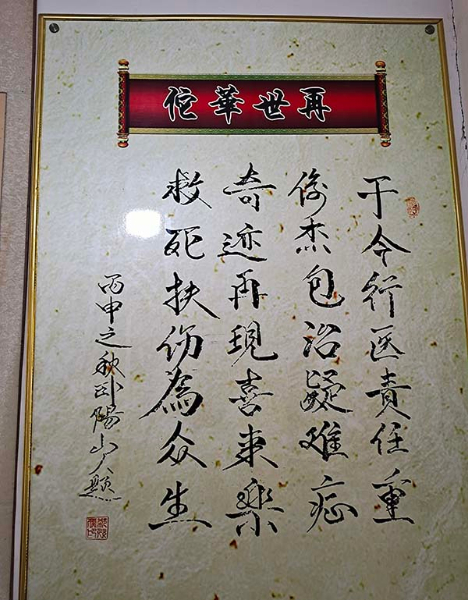 再世華佗
于今行医責任重
俊杰包治疑难症
奇迹再現喜来樂
救死扶伤為众生
丙申之秋卧陽山人題